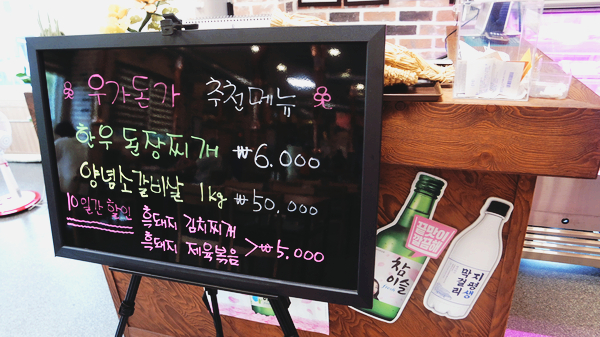 우가돈가 추천메뉴
한우 된장찌개 ₩6,000
양념소갈비살 1kg ₩50,000
10일간 할인 흑돼지 김치찌개
흑돼지 제육볶음 > ₩5,000
참이슬
지평생
막걸리